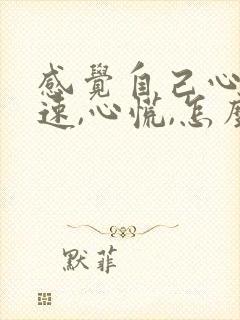 感覺自己心
速,心慌,怎
默菲